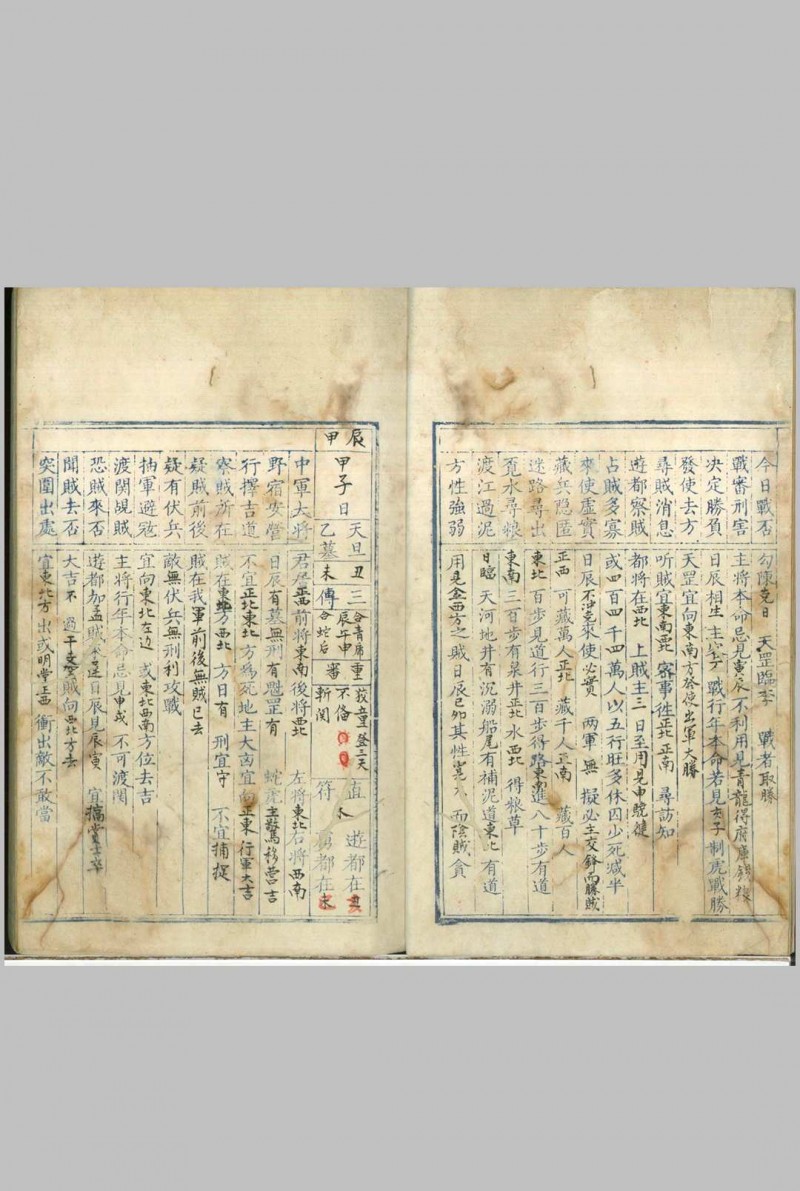 今日戰否 勾陳克日 天罡臨季 戰者取勝
戰審刑害 主將本命忌見 不利用見青龍得府庫錢粮
決定勝負 日辰相生主 戰行年本命若見 子制虎戰勝
發使去方 天罡宜向東南方發使出軍大勝
尋賊消息 听賊宜東南 審事徃正北正南 尋訪知
遊都察賊 都將在西北 上賊主三日至用見申 健
占賊多寡 或四百四千四萬人以五行旺多休囚少死减半
來使虛實 日辰不 來使必實 两軍無 擬必主交鋒而勝賊
藏兵隐匿 正西 可藏萬人正北 藏千人正南 藏百人
迷路尋出 東北 百步見道行三百步得路東南進八十步有道
覓水尋粮 東南 三百步有泉井正北 水西北 得粮草
渡江過泥 日臨 天河地井有沉溺船尾有補泥道東北 有道
方性強弱 用見金西方之賊日辰巳卯其性 而陰賊貪
甲辰
甲子日 天旦丑三合青席重 登三天 直 遊都在丑
乙墓未傳 辰午申 合蛇后 審 不俻 斬関 符 都在未
中軍大將 君居正西前將東南後將西北 左將東北右將西南
野宿安營 日辰有墓無刑有魁罡有 蛇虎主驚移营吉
行擇吉道 不宜正北東北方為死地主大凶宜向正東 行軍大吉
察賊所在 賊在東 方西北 方日有 刑宜守 不宜捕捉
疑賊前後 賊在我軍前後無賊已去
疑有伏兵 敵無伏兵無刑利攻戰
抽軍避宼 宜向東北左边 或東北西南方位去吉
渡関覘賊 主將行年本命忌見申戌 不可渡関
恐賊來否 遊都加孟賊不 日辰見辰寅 宜犒賞士卒
聞賊去否 大吉不 過干支 賊向西北方去
突圍出處 宜東北方 出或明堂正西 衝出敵不敢當